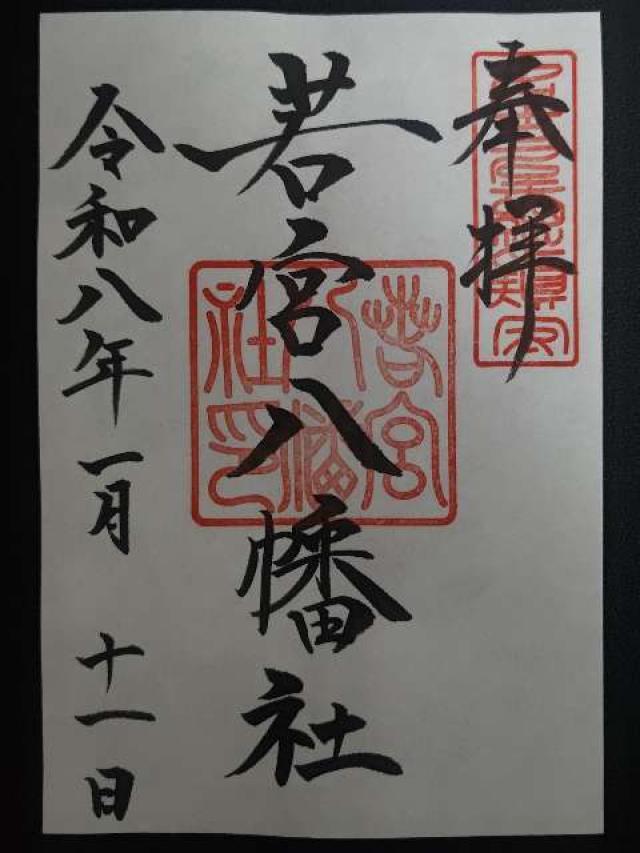 奉拝
若宮八幡社
若宮八幡社印
令和八年一月十一日